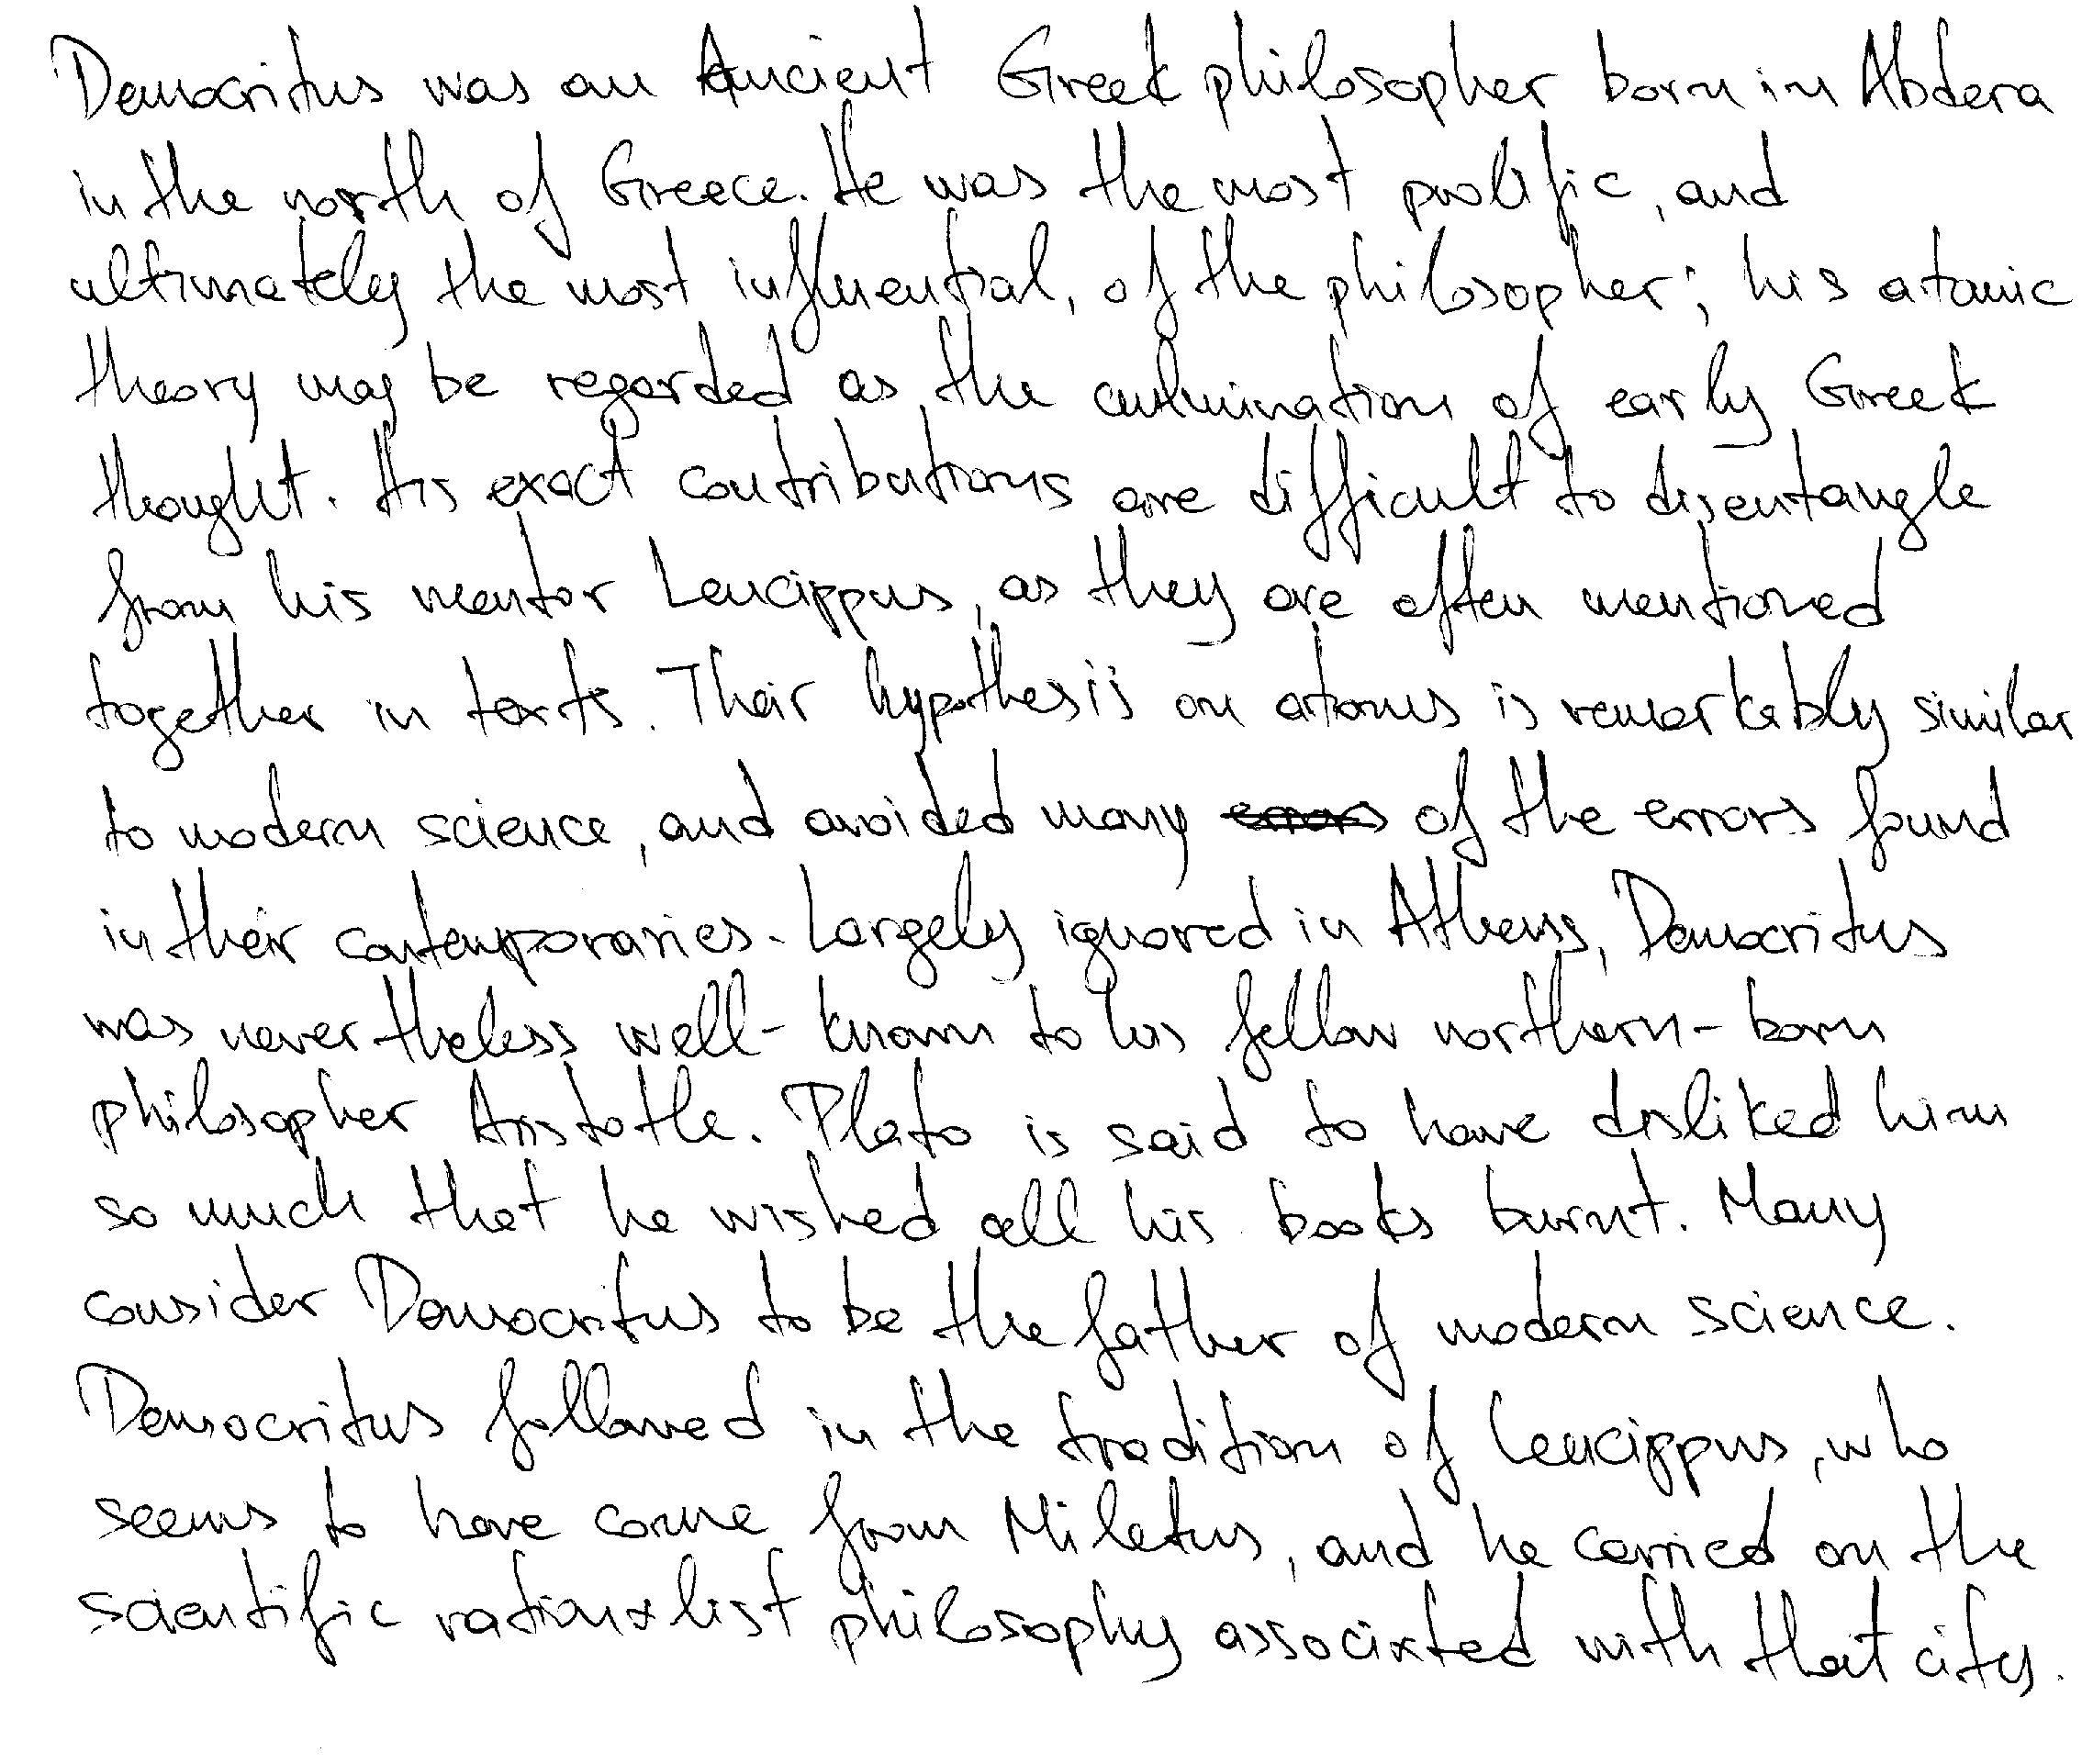 Democritus was an Ancient Greek philosopher born in Abdera
in the north of Greece. He was the most prolific, and
ultimately the most influential, of the philosopher; his atomic
theory may be regarded as the culmination of early Greek
thought. His exact contributions are difficult to disentangle
from his mentor Leucippus, as they are often mentioned
together in texts. Their hypothesis on atoms is remarkably similar
to modern science, and avoided many errors of the errors found
in their contemporaries. Largely ignored in Athens, Democritus
was nevertheless well-known to his fellow northern-born
philosopher Aristotle. Plato is said to have disliked him
so much that he wished all his books burnt. Many
consider Democritus to be the father of modern science.
Democritus followed in the tradition of Leucippus, who
seems to have come from Miletus, and he carried on the
scientific rationalist philosophy associated with that city.